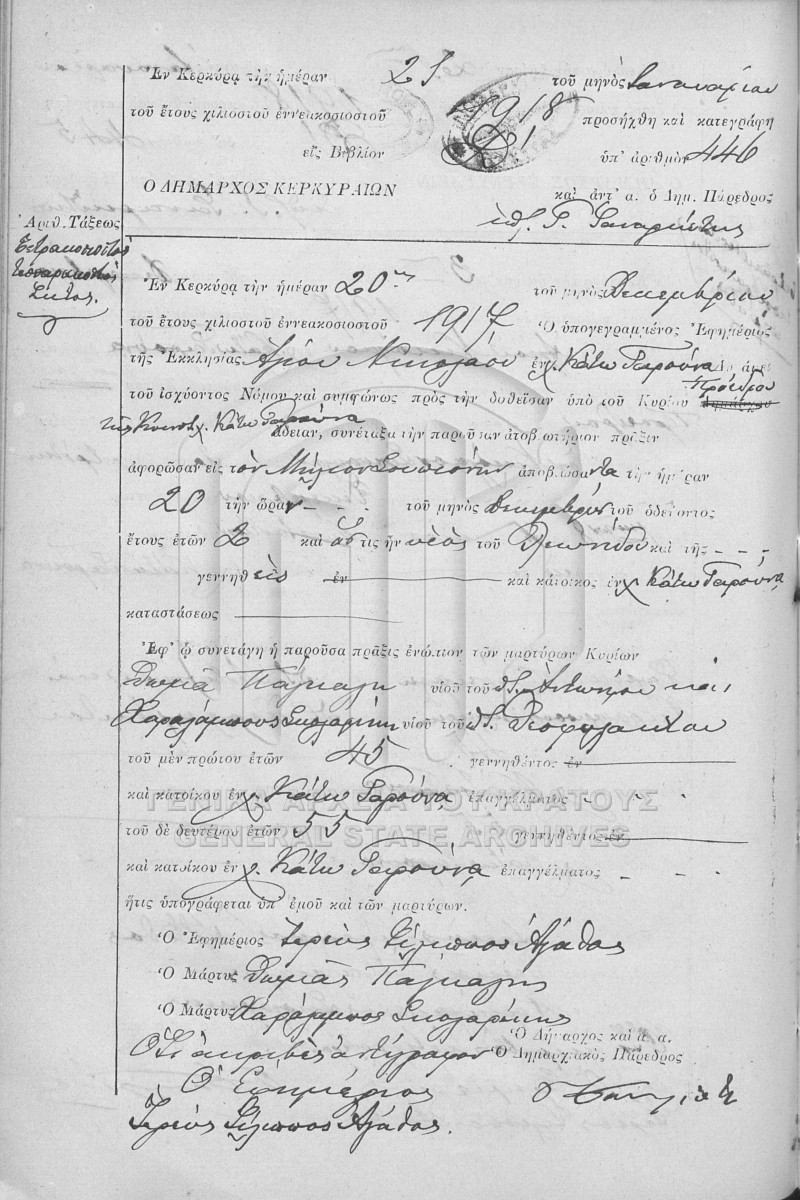 Ἐν Κερκύρᾳ τὴν ἡμέραν 25 τοῦ μηνὸς Ιανουαρίου
τοῦ ἔτους χιλιοστοῦ ἐννεακοσιοστοῦ 1918 προσήχθη καὶ κατεγράφη
εἰς Βιβλίον ὑπ' ἀριθμὸν 446
Ο ΔΗΜΑΡΧΟΣ ΚΕΡΚΥΡΑΙΩΝ καὶ ἀντ' α. ὁ Δημ. Πάρεδρος
Ἀριθ. Τάξεως
Τετρακοσιοστὸς
τεσσαρακοστὸς
ἕκτος.
Ἐν Κερκύρᾳ τὴν ἡμέραν 20ην τοῦ μηνὸς Δεκεμβρίου
τοῦ ἔτους χιλιοστοῦ ἐννεακοσιοστοῦ 1917 Ὁ ὑπογεγραμμένος Ἐφημέριος
τῆς Ἐκκλησίας Ἁγίου Νικολάου ἐν χ. Κάτω Γαρούνα Δυνάμει
τοῦ ἰσχύοντος Νόμου καὶ συμφώνως πρὸς τὴν δοθεῖσαν ὑπὸ τοῦ Κυρίου Προέδρου
τῆς Κοινότ. χ. Κάτω Γαρούνα
ἄδειαν, συνέταξα τὴν παροῦσαν ἀποβιωτήριον πρᾶξιν
ἀφορῶσαν εἰς τὸν ἀποβιώσαντα τὴν ἡμέραν
20 τὴν ὥραν - - - τοῦ μηνὸς Δεκεμβρίου τοῦ ὁδεύοντος
ἔτους ἐτῶν 2 καὶ ὅστις ἦν υἱὸς τοῦ Λεωνίδου καὶ τῆς - - -
γεννηθεὶς ἐν καὶ κάτοικος ἐν χ. Κάτω Γαρούνα
καταστάσεως
Ἐφ' ᾧ συνετάγη ἡ παροῦσα πρᾶξις ἐνώπιον τῶν μαρτύρων Κυρίων
Θωμᾶ Πάγκαλη υἱοῦ τοῦ π. Ἀντωνίου καὶ
Χαραλάμπους Σκολαρίκη υἱοῦ τοῦ π. Θεοφυλάκτου
τοῦ μὲν πρώτου ἐτῶν 45 γεννηθέντος ἐν
καὶ κατοίκου ἐν χ. Κάτω Γαρούνα ἐπαγγέλματος - - -
ΓΕΝΙΚΑ ΑΡΧΕΙΑ ΤΟΥ ΚΡΑΤΟΥΣ
τοῦ δὲ δευτέρου ἐτῶν 55 γεννηθέντος ἐν
GENERAL STATE ARCHIVES
καὶ κατοίκου ἐν χ. Κάτω Γαρούνα ἐπαγγέλματος - - -
ἥτις ὑπογράφεται ὑπ' ἐμοῦ καὶ τῶν μαρτύρων.
Ὁ Ἐφημέριος Ἱερεὺς Φίλιππος Ἀγάθος
Ὁ Μάρτυς Θωμᾶς Πάγκαλης
Ὁ Μάρτυς Χαράλαμπος Σκολαρίκης
Ὁ Δήμαρχος καὶ α. α.
Ὅτι ἀκριβὲς ἀντίγραφον Ὁ Δημαρχιακὸς Πάρεδρος
Ὁ Ἐφημέριος
Ἱερεὺς Φίλιππος Ἀγάθος.